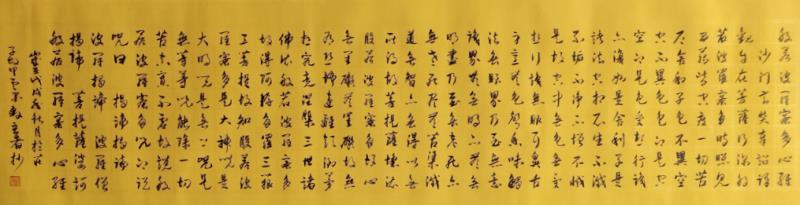 般若波羅蜜多心經
沙门玄奘奉詔譯
觀自在菩薩行深般
若波羅蜜多時照見
五蘊皆空度一切苦
厄舍利子色不異空
空不異色色即是空
空即是色受想行識
亦復如是舍利子是
諸法空相不生不滅
不垢不淨不增不減
是故空中無色無受
想行識無眼耳鼻舌
身意無色聲香味觸
法無眼界乃至無意
識界無無明亦無無
明盡乃至無老死亦
無老死盡無苦集滅
道無智亦無得以無
所得故菩提薩埵依
般若波羅蜜多故心
無罣礙無罣礙故無
有恐怖遠離顛倒夢
想究竟涅槃三世諸
佛依般若波羅蜜多
故得阿耨多羅三藐
三菩提故知般若波
羅蜜多是大神咒是
大明咒是無上咒是
無等等咒能除一切
苦真實不虛故說般
若波羅蜜多咒即說
咒曰 揭諦揭諦
波羅揭諦 波羅僧
揭諦 菩提薩婆訶
般若波羅蜜多心經
戊戌秋月於
抄